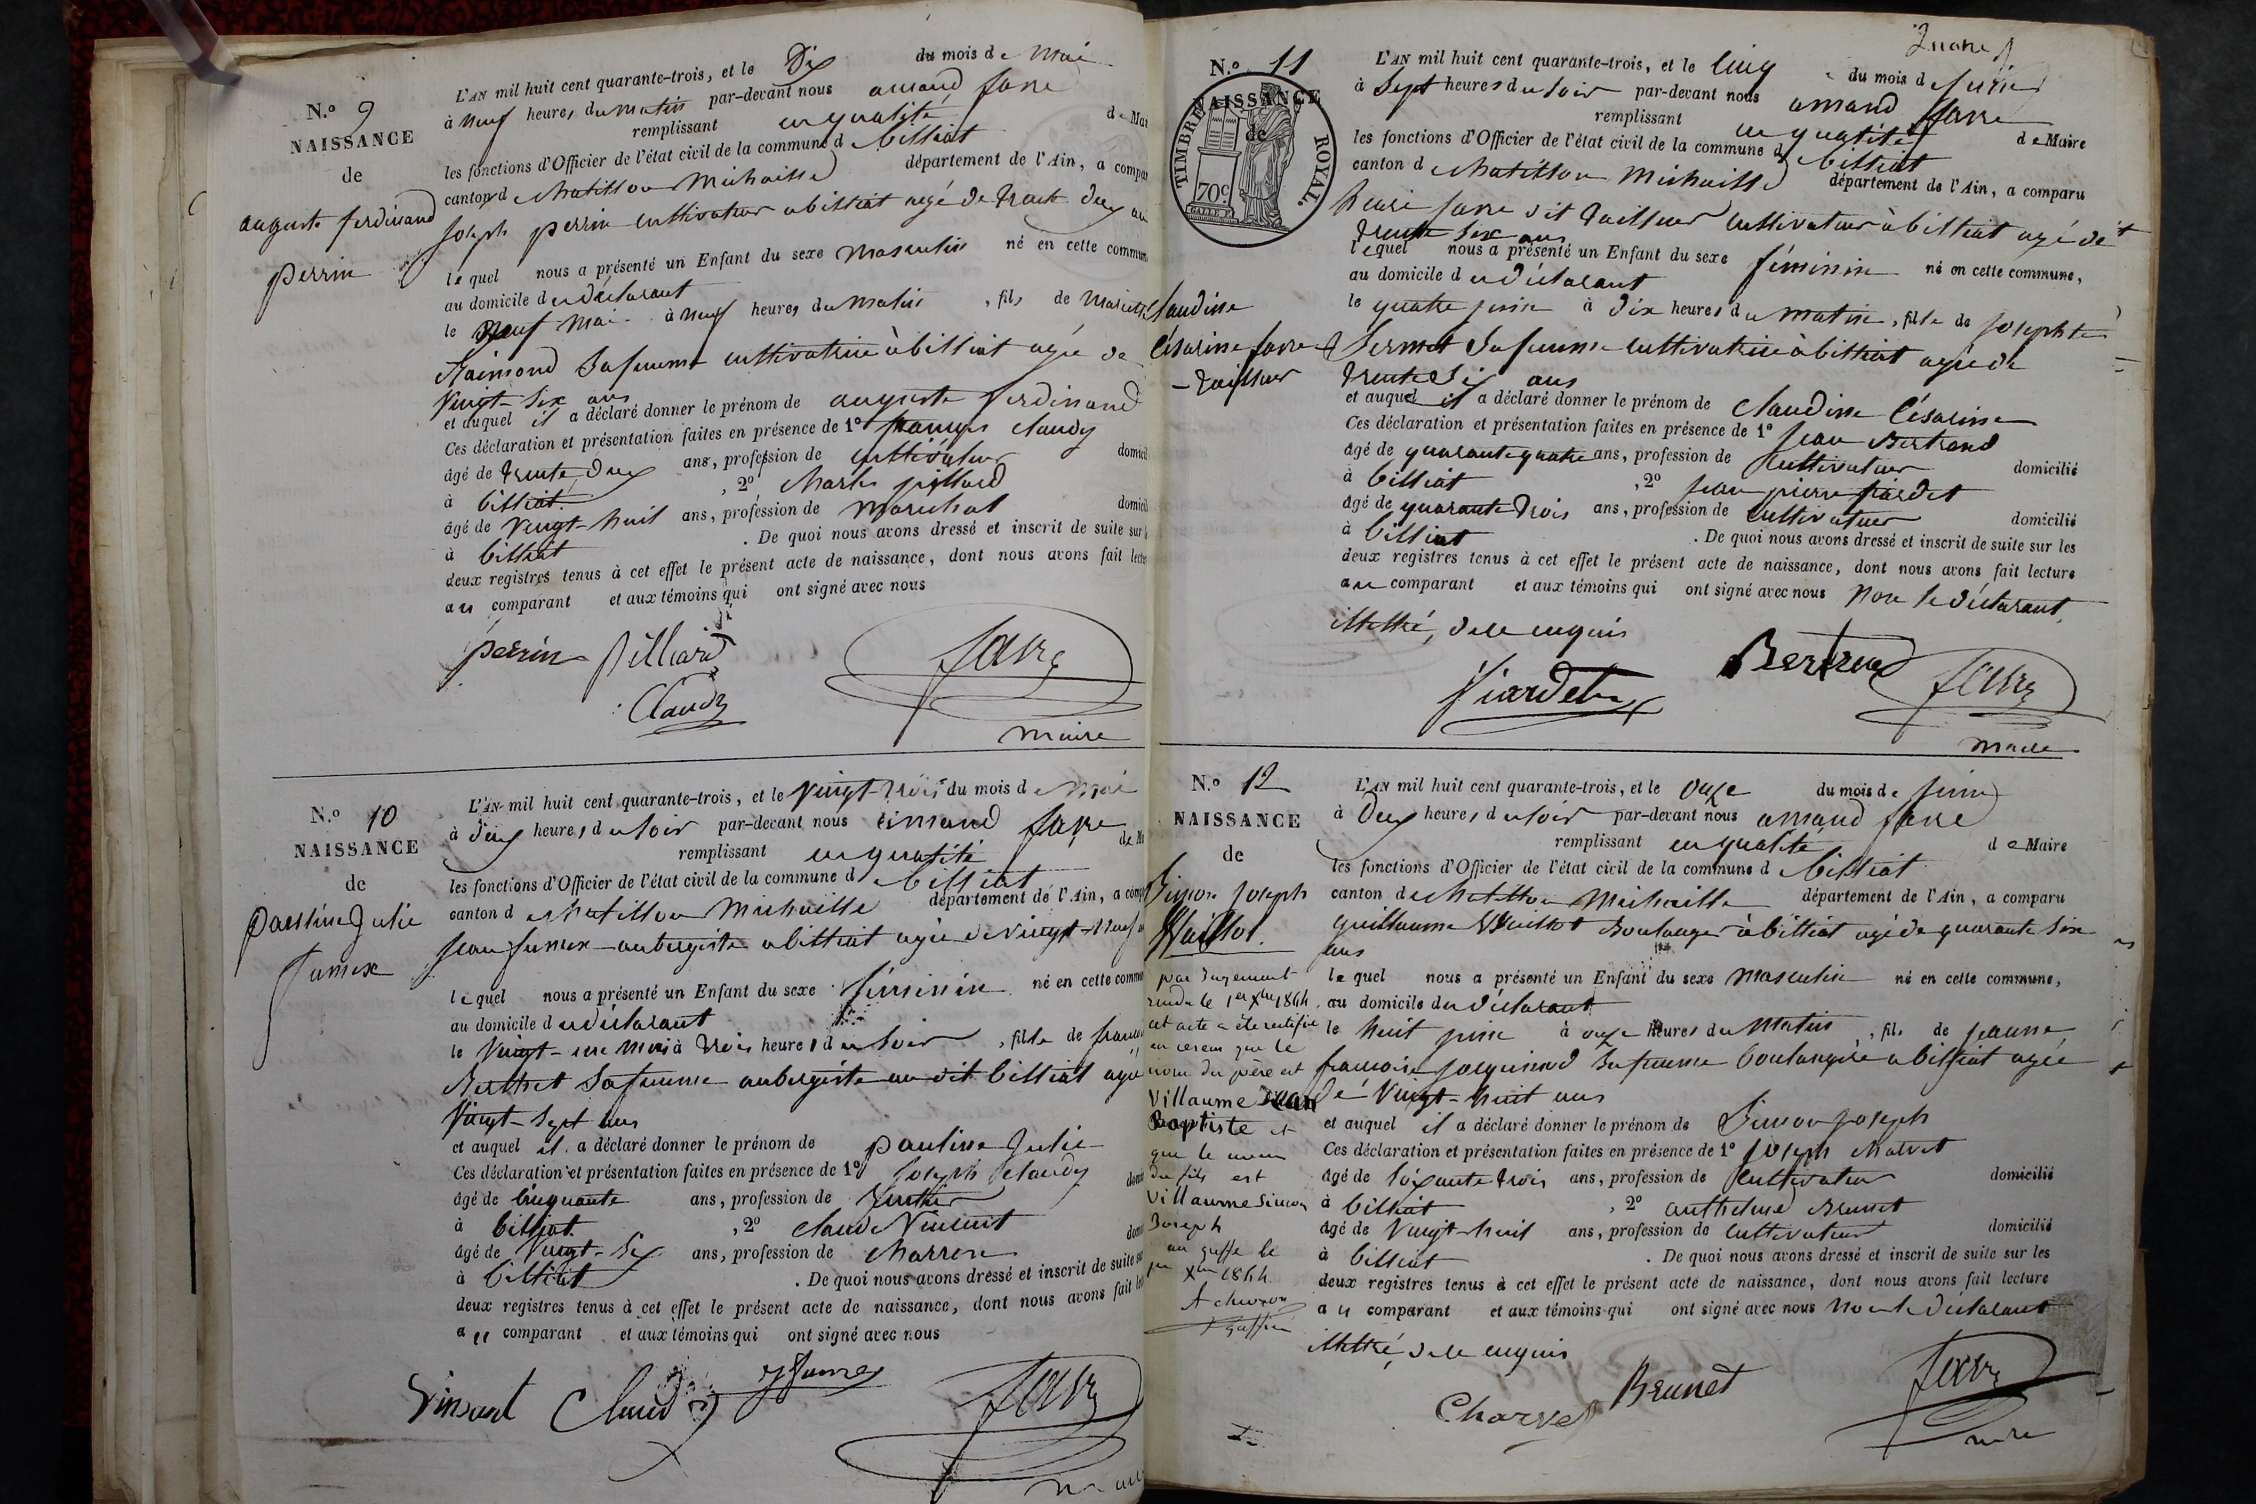 N.º 9
NAISSANCE
de
auguste ferdinand
perrin
L'AN mil huit cent quarante-trois, et le Dix du mois de Mai
à neuf heures du matin par-devant nous amand favre
remplissant en qualité de Mai
les fonctions d'Officier de l'état civil de la commune d billiat
canton d chatillon Michaille département de l'Ain, a compar
joseph perrin cultivateur a billiat agé de trente deux an
lequel nous a présenté un Enfant du sexe masculin né en cette commun
au domicile du déclarant
le neuf mai à neuf heures du matin, fils de
Raimond sa femme cultivatrice à billiat agée de
vingt-six ans
et auquel il a déclaré donner le prénom de auguste ferdinand
Ces déclaration et présentation faites en présence de 1º françois claudy
âgé de trente deux ans, profession de cultivateur domicil
à billiat, 2º charles pilliard
âgé de vingt-huit ans, profession de marechal domicil
à billiat. De quoi nous avons dressé et inscrit de suite sur l
deux registres tenus à cet effet le présent acte de naissance, dont nous avons fait lectur
au comparant et aux témoins qui ont signé avec nous
perrin pilliard favre
Claudy
maire
N.º 10
NAISSANCE
de
pauline Julie
fumex
L'AN mil huit cent quarante-trois, et le vingt-trois du mois de Mai
à deux heures du soir par-devant nous amand favre
remplissant en qualité de M
les fonctions d'Officier de l'état civil de la commune d billiat
canton de chatillon Michaille département de l'Ain, a comp
jean fumex aubergiste a billiat agé de vingt-neuf
lequel nous a présenté un Enfant du sexe féminin né en cette commu
au domicile du déclarant
le vingt-un mai à trois heures du soir, fille de
Berthet sa femme aubergiste au dit billiat agée
vingt-sept ans
et auquel il a déclaré donner le prénom de pauline Julie
Ces déclaration et présentation faites en présence de 1º joseph claudy
âgé de cinquante ans, profession de domi
à billiat, 2º claude Vincent
âgé de vingt-six ans, profession de charron domi
à billiat. De quoi nous avons dressé et inscrit de suite sur
deux registres tenus à cet effet le présent acte de naissance, dont nous avons fait le
au comparant et aux témoins qui ont signé avec nous
Vincent Claudy jfumex favre
N.º 11
NAISSANCE
de
TIMBRE ROYAL.
70c
claudine
Césarine favre
-tailleur
L'AN mil huit cent quarante-trois, et le cinq du mois de juin
à sept heures du soir par-devant nous amand favre
remplissant en qualité de Maire
les fonctions d'Officier de l'état civil de la commune d billiat
canton de chatillon michaille département de l'Ain, a comparu
favre dit tailleur cultivateur à billiat agé de
trente six ans
lequel nous a présenté un Enfant du sexe féminin né en cette commune,
au domicile du déclarant
le quatre juin à dix heures du matin, fille de josephte
Sermet sa femme cultivatrice à billiat agée de
trente six ans
et auquel il a déclaré donner le prénom de claudine Césarine
Ces déclaration et présentation faites en présence de 1º jean Bertrand
âgé de quarante quatre ans, profession de cultivateur domicilié
à billiat, 2º jean pierre
âgé de quarante trois ans, profession de cultivateur domicilié
à billiat. De quoi nous avons dressé et inscrit de suite sur les
deux registres tenus à cet effet le présent acte de naissance, dont nous avons fait lecture
au comparant et aux témoins qui ont signé avec nous non le déclarant
illettré, de ce enquis
Bertrand favre
maire
N.º 12
NAISSANCE
de
Simon joseph
Vuillot.
par jugement
rendu le 1er Xbre 1844
cet acte a été rectifié
en ce sens que le
nom du père est
Villaume Jean
Baptiste et
que le nom
du fils est
Villaume Simon
Joseph
au greffe le
Xbre 1844
L'AN mil huit cent quarante-trois, et le onze du mois de juin
à deux heures du soir par-devant nous amand favre
remplissant en qualité de Maire
les fonctions d'Officier de l'état civil de la commune d billiat
canton de chatillon Michaille département de l'Ain, a comparu
guillaume Vuillot Boulanger à billiat agé de quarante six
ans
lequel nous a présenté un Enfant du sexe masculin né en cette commune,
au domicile du déclarant
le huit juin à onze heures du matin, fils de jeanne
françoise jacquinod sa femme boulangère a billiat agée
de vingt-huit ans
et auquel il a déclaré donner le prénom de Simon joseph
Ces déclaration et présentation faites en présence de 1º joseph charvet
âgé de soixante trois ans, profession de cultivateur domicilié
à billiat, 2º anthelme Brunet
âgé de vingt-huit ans, profession de cultivateur domicilié
à billiat. De quoi nous avons dressé et inscrit de suite sur les
deux registres tenus à cet effet le présent acte de naissance, dont nous avons fait lecture
au comparant et aux témoins qui ont signé avec nous non le déclarant
illettré, de ce enquis
Charvet Brunet favre
maire